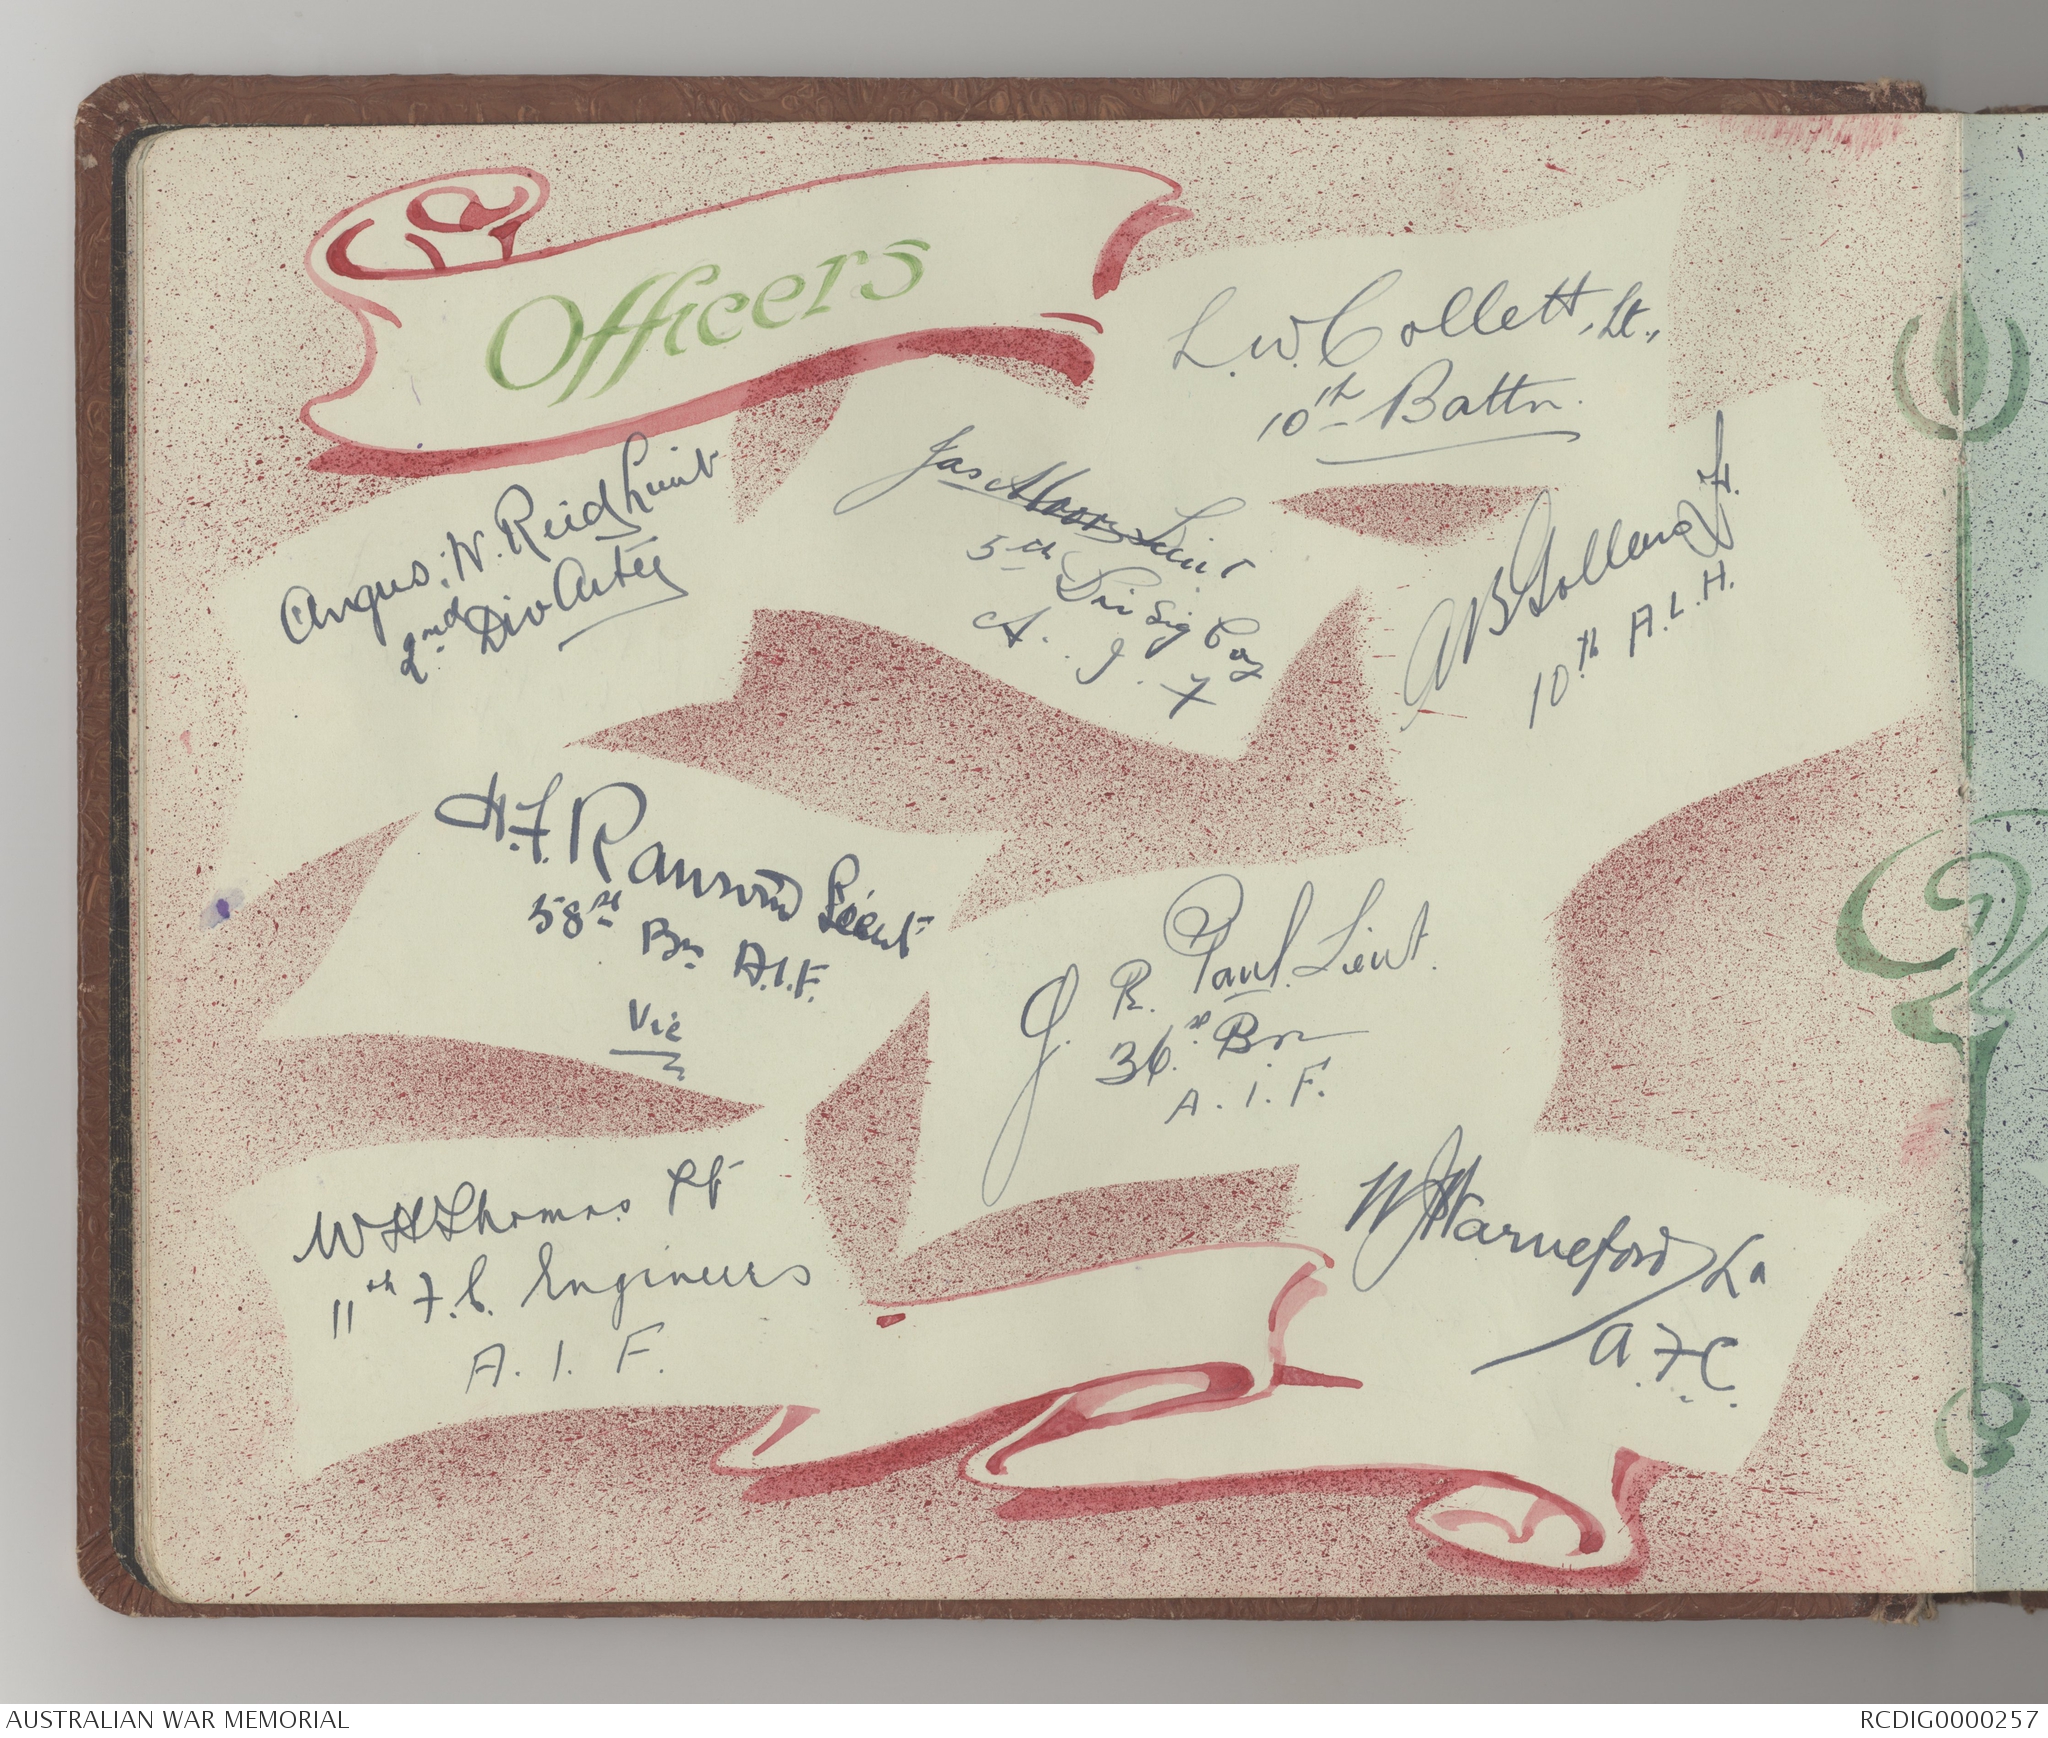 Officers
L. W. Collett, Lt.,
10th Battn.
Angus. W. Reid Lieut
2nd Div Arty
Jas Moore Lieut
5th Div Sig Coy
A. I. F
10th A. L. H.
H. F. Ransom Lieut
58th Bn A.I.F.
Vic
J. R. Paul. Lieut.
36th Bn
A. I. F.
W H Thomas Lt
11th F. C. Engineers
A. I. F.
W J Warneford Lt
A. F. C.
AUSTRALIAN WAR MEMORIAL
RCDIG0000257